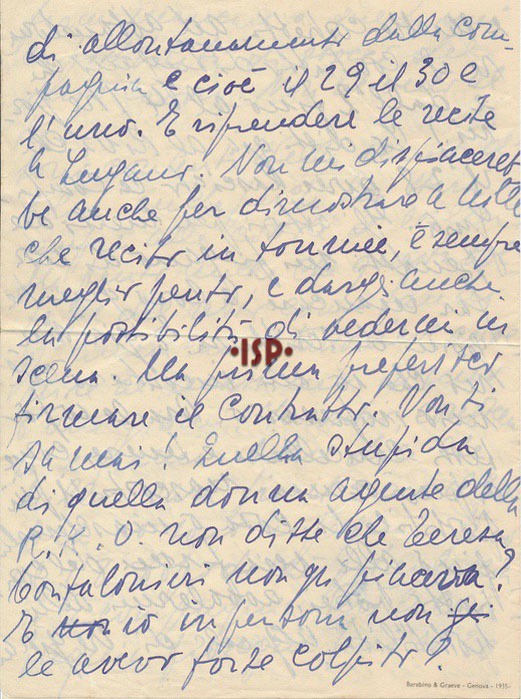 di allontanamento dalla com-
pagnia e cioè il 29 il 30 e
l'uno. E riprendere le recite
a Lugano. Non mi dispiacereb
be anche per dimostrare a tutti
che recito in tournée, è sempre
meglio penso, e dargli anche
la possibilità di vedermi in
scena. Ma prima preferisco
firmare il contratto. Non si
sa mai! Quella stupida
di quella donna agente della
R.K.O. non disse che Teresa
Confalonieri non gli piaceva?
E non io in persona non gli
le avevo forse colpito?
ISP
Barabino & Graeve - Genova - 1935-